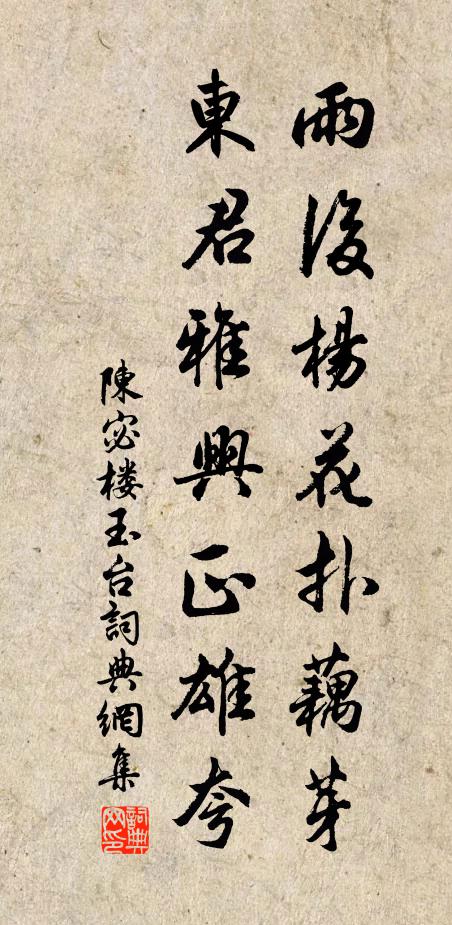 雨後楊花扑藕芽
東君雅興正雄夸
陳宓楼玉台詞典網集
詞典網印